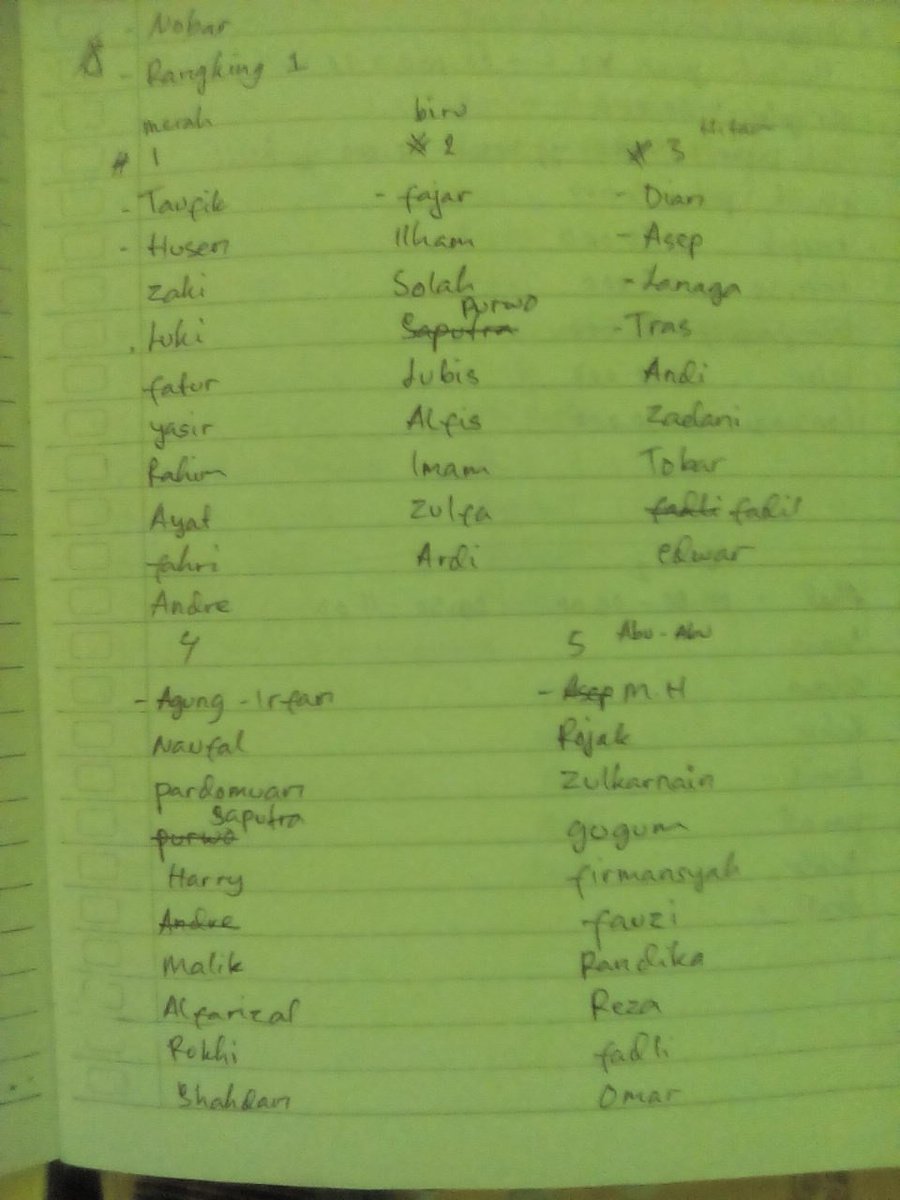 - Nobar
- Rangking 1
merah biru Hitam
# 1 # 2 # 3
- Taufik - fajar - Dian
- Husen Ilham - Asep
Zaki Solah - Lanaga
Purwo
Luki Saputra - Tras
fatur Lubis Andi
yasir Alfis Zadani
Rahim Imam Tobar
Ayat Zulfa fadli fadil
fahri Ardi edwar
Andre
4 5 Abu-Abu
- Agung - Irfan - Asep M.H
Naufal Rojak
pardomuan Zulkarnain
saputra
purwo gogum
Harry firmansyah
Andre fauzi
Malik Randika
Alfarizal Reza
Rokhi fadli
Shahdan Omar